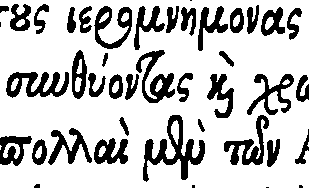 τοὺς ἱερομνήμονας
συνθύοντας καὶ χρω
πολλαὶ μὲν τῶν